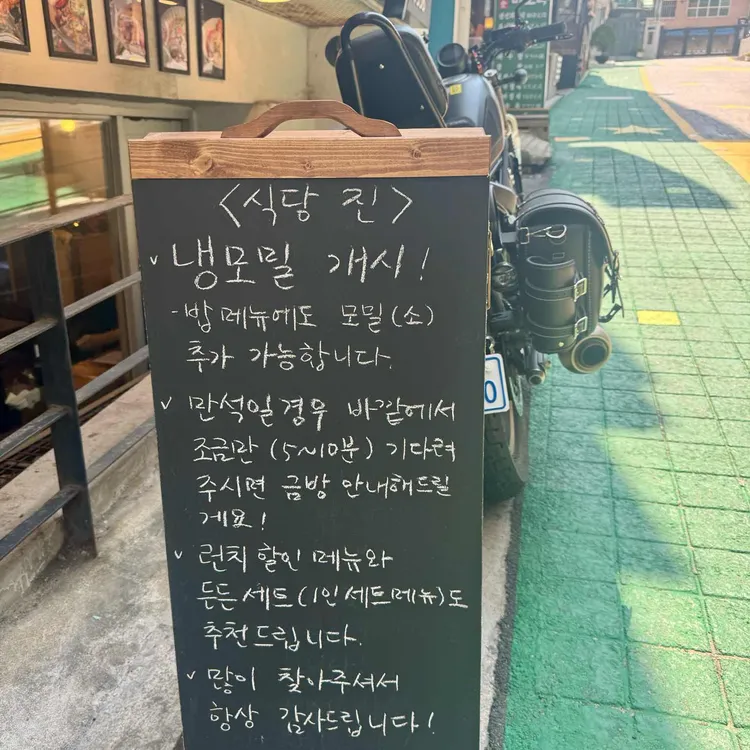 <식당 진>
✓ 냉모밀 개시!
- 밥 메뉴에도 모밀(소)
추가 가능합니다.
✓ 만석일 경우 바깥에서
조금만 (5~10분) 기다려
주시면 금방 안내해드릴
게요!
✓ 런치 할인 메뉴와
든든세트(1인 세트메뉴)도
추천드립니다.
✓ 많이 찾아주셔서
항상 감사드립니다!
0